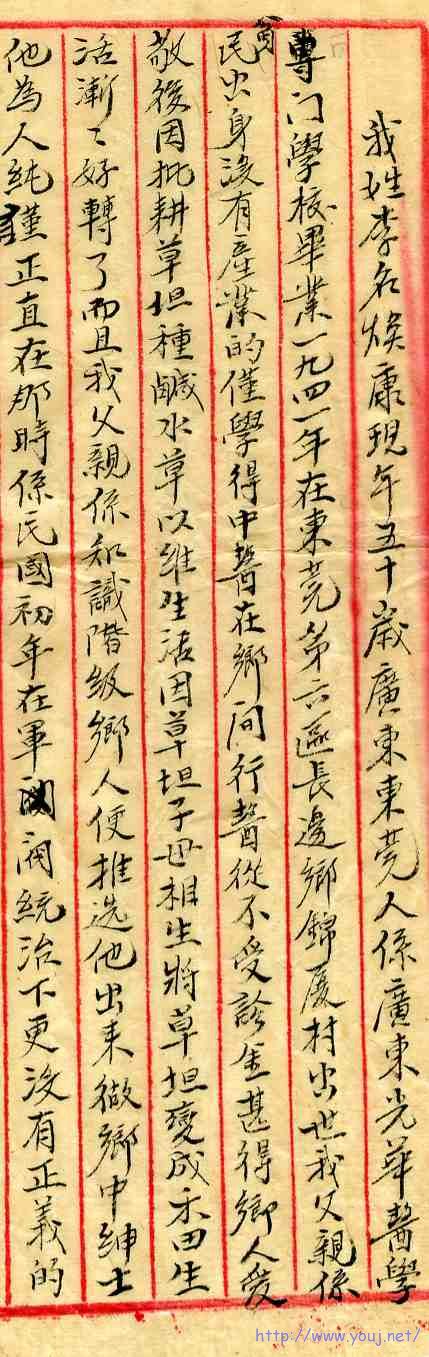 我姓李名煥康現年五十歲廣東東莞人係廣東光華醫學
專门學校畢業一九四一年在東莞第六區長邊鄉錦厦村出世我父親係
貧民出身沒有產業的僅學得中醫在鄉间行醫從不受診金甚得鄉人愛
敬後因批耕草坦種鹹水草以維生活因草坦子母相生將草坦變成禾田生
活漸〻好轉了而且我父親係知識階級鄉人便推选他出来做鄉中紳士
他為人純謹正直在那時係民國初年在軍阀統治下更沒有正義的
http://www.youj.net/